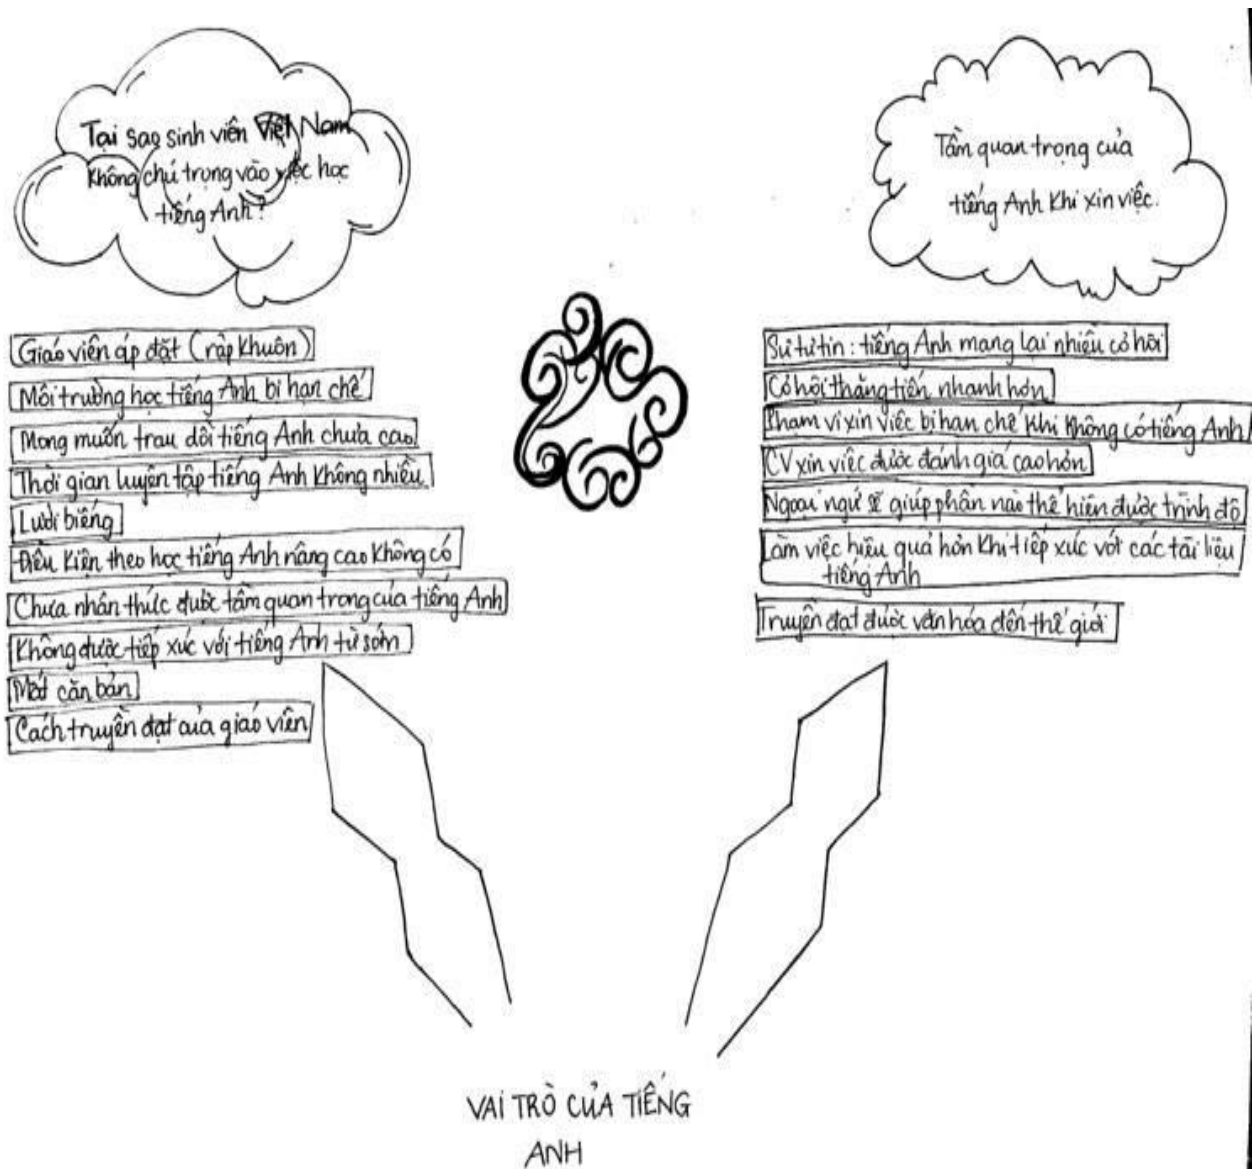 Tại sao sinh viên Việt Nam
không chú trọng vào việc học
tiếng Anh?
Giáo viên áp đặt (rập khuôn)
Môi trường học tiếng Anh bị hạn chế
Mong muốn trau dồi tiếng Anh chưa cao
Thời gian luyện tập tiếng Anh không nhiều
Lười biếng
Điều kiện theo học tiếng Anh nâng cao không có
Chưa nhận thức được tầm quan trọng của tiếng Anh
Không được tiếp xúc với tiếng Anh từ sớm
Mất căn bản
Cách truyền đạt của giáo viên
Tầm quan trọng của
tiếng Anh khi xin việc.
Sự tự tin: tiếng Anh mang lại nhiều cơ hội
Cơ hội thăng tiến nhanh hơn
Phạm vi xin việc bị hạn chế khi không có tiếng Anh
CV xin việc được đánh giá cao hơn
Ngoại ngữ sẽ giúp phần nào thể hiện được trình độ
Làm việc hiệu quả hơn khi tiếp xúc với các tài liệu
tiếng Anh
Truyền đạt được văn hóa đến thế giới
VAI TRÒ CỦA TIẾNG
ANH